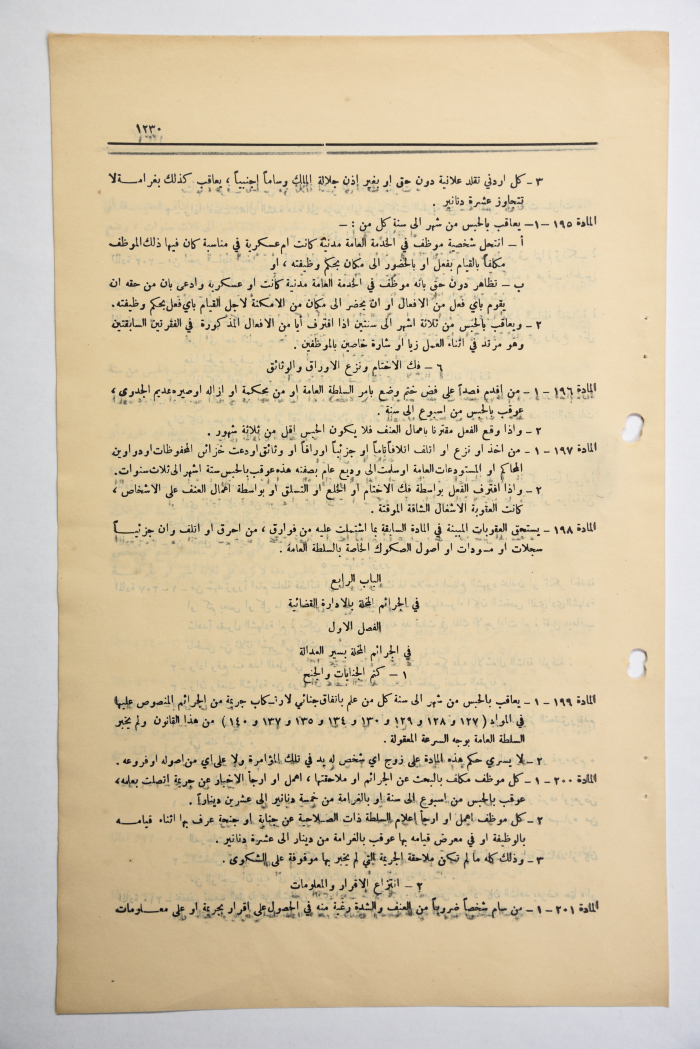 ١٢٣٠
٣ - كل اردني تقلد علانية دون حق او بغير إذن جلالة الملك وساماً اجنبياً ، يعاقب كذلك بغرامة لا
تتجاوز عشرة دنانير .
المادة ١٩٥ - ١ - يعاقب بالحبس من شهر الى سنة كل من : -
أ - انتحل شخصية موظف في الخدمة العامة مدنية كانت ام عسكرية في مناسبة كان فيها ذلك الموظف
مكلفاً بالقيام بفعل او بالحضور الى مكان بحكم وظيفته ، او
ب - تظاهر دون حق بانه موظف في الخدمة العامة مدنية كانت او عسكرية وادعى بان من حقه ان
يقوم باي فعل من الافعال او ان يحضر الى مكان من الامكنة لاجل القيام باي فعل بحكم وظيفته .
٢ - ويعاقب بالحبس من ثلاثة اشهر الى سنتين اذا اقترف أيا من الافعال المذكورة في الفقرتين السابقتين
وهو مرتد في اثناء العمل زيا او شارة خاصين بالموظفين .
٦ - فك الاختام ونزع الاوراق والوثائق
المادة ١٩٦ - ١ - من اقدم قصداً على فض ختم وضع بامر السلطة العامة او من محكمة او ازاله او صيره عديم الجدوى ،
عوقب بالحبس من اسبوع الى سنة .
٢ - واذا وقع الفعل مقترنا باعمال العنف فلا يكون الحبس اقل من ثلاثة شهور .
المادة ١٩٧ - ١ - من اخذ او نزع او اتلف اتلافاً تاماً او جزئياً اوراقاً او وثائق اودعت خزائن المحفوظات او دواوين
المحاكم او المستودعات العامة او سلمت الى وديع عام بصفته هذه عوقب بالحبس ستة اشهر الى ثلاث سنوات .
٢ - واذا اقترف الفعل بواسطة فك الاختام او الخلع او التسلق او بواسطة اعمال العنف على الاشخاص ،
كانت العقوبة الاشغال الشاقة المؤقتة .
المادة ١٩٨ - يستحق العقوبات المبينة في المادة السابقة بما اشتملت عليه من فوارق ، من احرق او اتلف وان جزئيـــاً
سجلات او مسودات او أصول الصكوك الخاصة بالسلطة العامة .
الباب الرابع
في الجرائم المخلة بالادارة القضائية
الفصل الاول
في الجرائم المخلة بسير العدالة
١ - كتم الجنايات والجنح
المادة ١٩٩ - ١ - يعاقب بالحبس من شهر الى سنة كل من علم باتفاق جنائي لارتـكاب جريمة من الجرائم المنصوص عليها
في المواد ( ١٢٧ و ١٢٨ و ١٢٩ و ١٣٠ و ١٣٤ و ١٣٥ و ١٣٧ و ١٤٠ ) من هذا القانون ولم يخبر
السلطة العامة بوجه السرعة المعقولة .
٢ - لا يسري حكم هذه المادة على زوج اي شخص له يد في تلك المؤامرة ولا على اي من اصوله او فروعه .
المادة ٢٠٠ - ١ - كل موظف مكلف بالبحث عن الجرائم او ملاحقتها ، اهمل او ارجأ الاخبار عن جريمة اتصلت بعلمه ،
عوقب بالحبس من اسبوع الى سنة او بالغرامة من خمسة دنانير إلى عشرين ديناراً .
٢ - كل موظف اهمل او ارجأ إعلام السلطة ذات الصـلاحية عن جناية او جنحة عرف بها اثناء قيامـــه
بالوظيفة او في معرض قيامه بها عوقب بالغرامة من دينار الى عشرة دنانير .
٣ - وذلك كله ما لم تكن ملاحقة الجريمة التي لم يخبر بها موقوفة على الشكوى .
٢ - انتزاع الاقرار والمعلومات
المادة ٢٠١ - ١ - من سام شخصاً ضروباً من العنف والشدة رغبة منه في الحصول على اقرار بجريمة او على معـــلومات